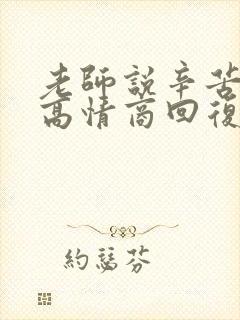 老師說辛苦
高情商回復
約瑟芬